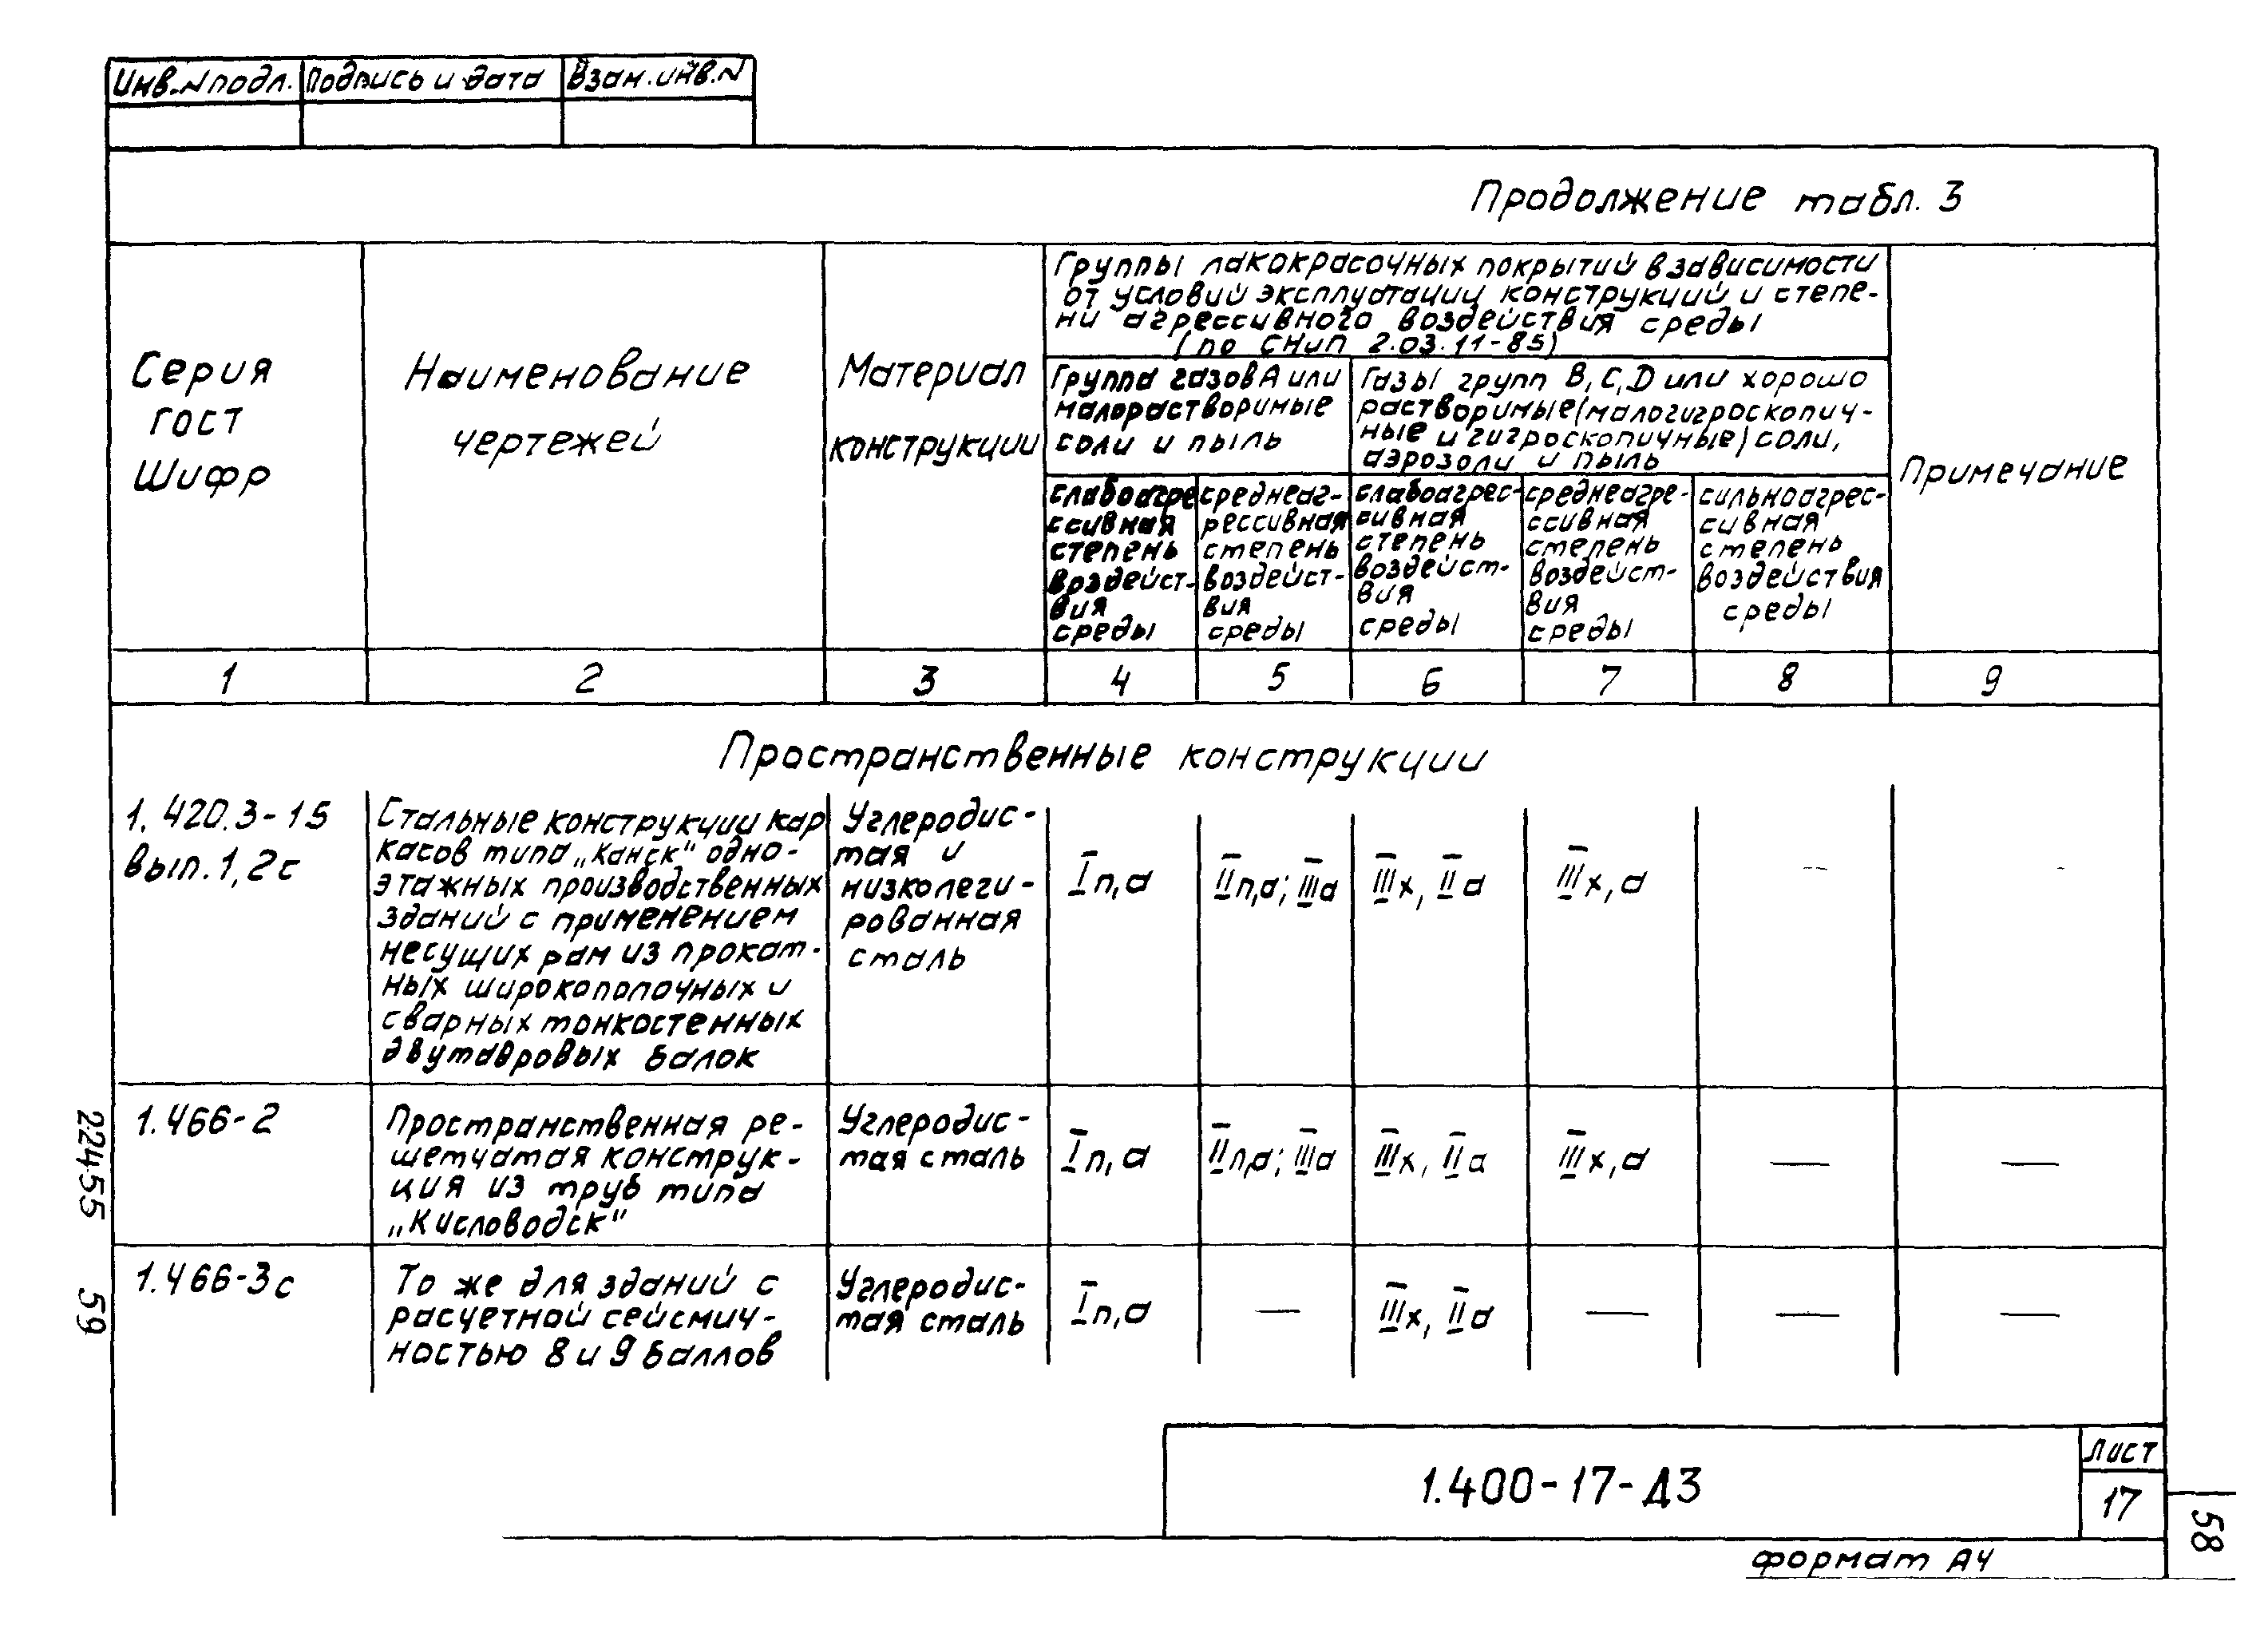 Инв.N подл. Подпись и дата Взам.инв.N
Продолжение табл. 3
Серия
ГОСТ
Шифр
Наименование
чертежей
Материал
конструкции
Группы лакокрасочных покрытий в зависимости
от условий эксплуатации конструкций и степе-
ни агрессивного воздействия среды
(по СНиП 2.03.11-85)
Группа газов А или
малорастворимые
соли и пыль
Газы групп В, С, D или хорошо
растворимые (малогигроскопич-
ные и гигроскопичные) соли,
аэрозоли и пыль
слабоагре
ссивная
степень
воздейст-
вия
среды
среднеаг-
рессивная
степень
воздейст-
вия
среды
слабоагрес-
сивная
степень
воздейст-
вия
среды
среднеагре-
ссивная
степень
воздейст-
вия
среды
сильноагрес-
сивная
степень
воздействия
среды
Примечание
1 2 3 4 5 6 7 8 9
Пространственные конструкции
1.420.3-15
вып.1,2с
Стальные конструкции кар
касов типа „Канск" одно-
этажных производственных
зданий с применением
несущих рам из прокат-
ных широкополочных и
сварных тонкостенных
двутавровых балок
Углеродис-
тая и
низколеги-
рованная
сталь
Iп,а IIп,а; IIIа IIIх, IIа IIIх,а – -
1.466-2
Пространственная ре-
шетчатая конструк-
ция из труб типа
„Кисловодск"
Углеродис-
тая сталь
Iп,а IIп,а; IIIа IIIх, IIа IIIх,а — —
1.466-3с
То же для зданий с
расчетной сейсмич-
ностью 8 и 9 баллов
Углеродис-
тая сталь
Iп,а — IIIх, IIа — — —
22455 59
1.400-17-Д3
Лист
17
58
формат А4